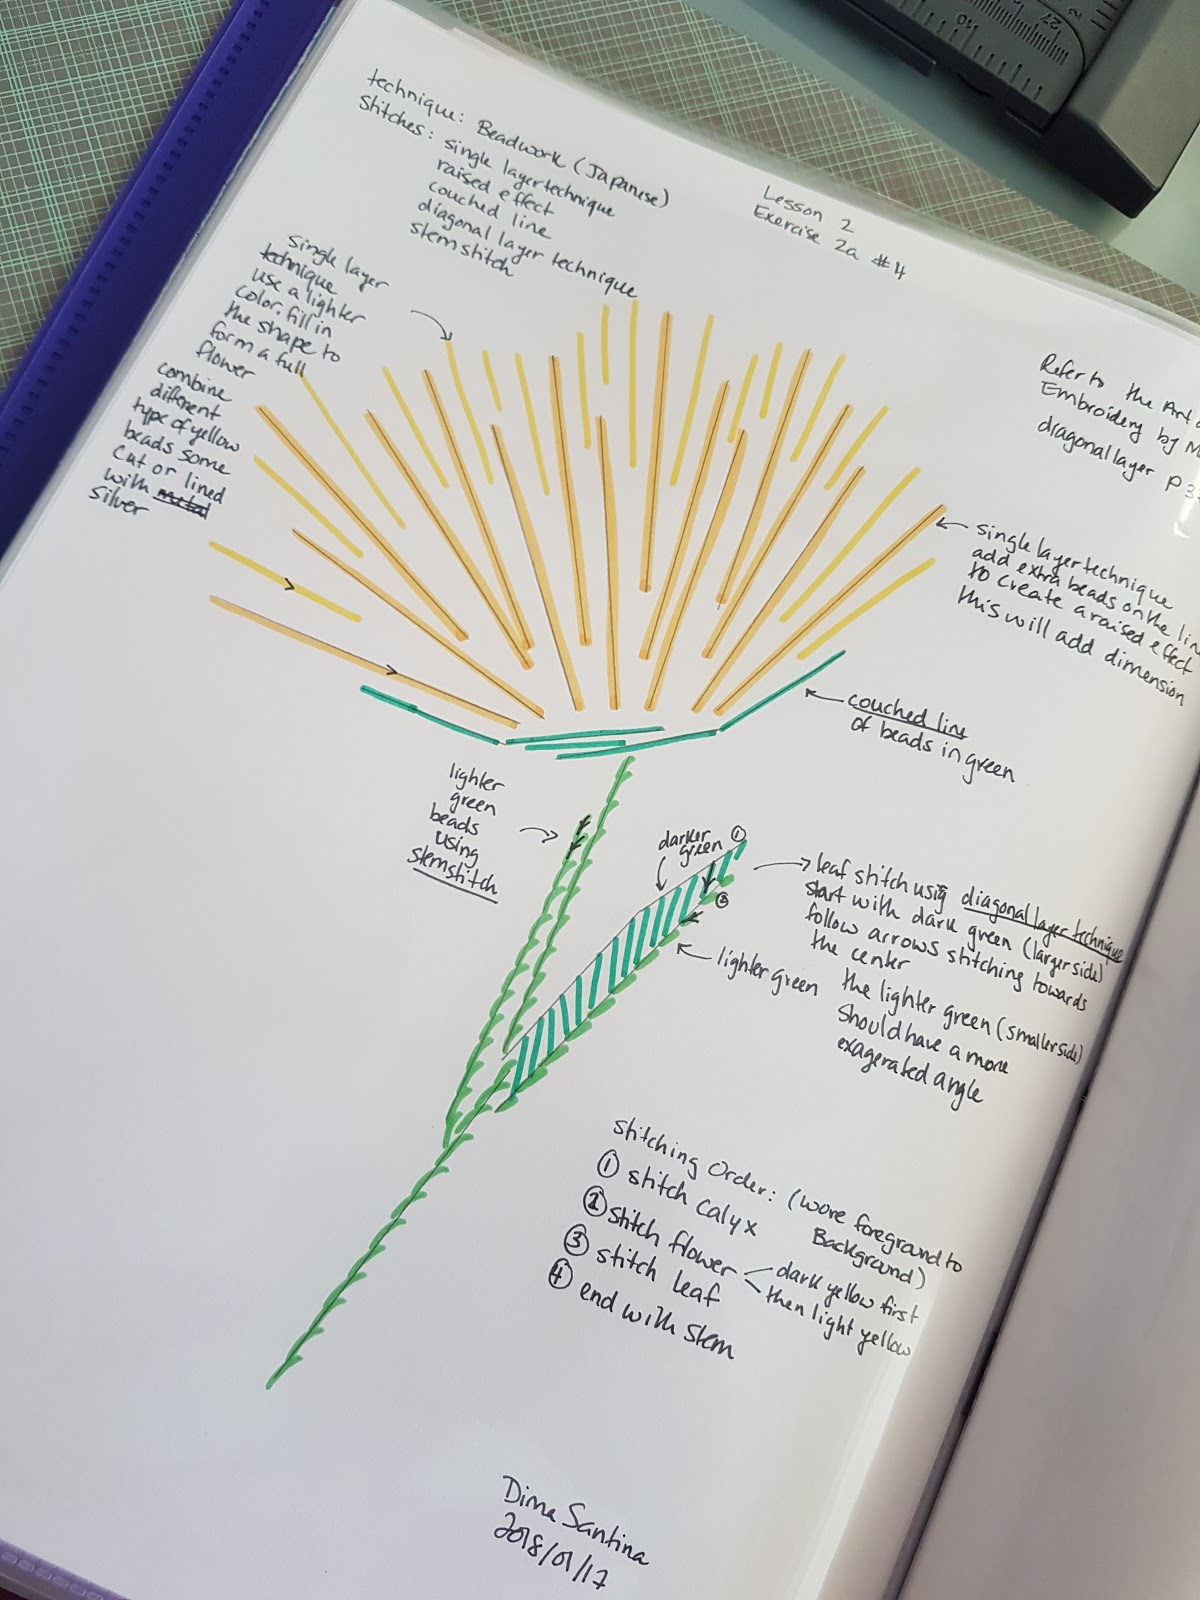 technique: Beadwork (Japanese)
Stitches: single layer technique
raised effect
couched line
diagonal layer technique
stem stitch
Lesson 2
Exercise 2a #4
single layer
technique
use a lighter
color. fill in
the shape to
form a full
flower
combine
different
type of yellow
beads some
cut or lined
with metal
silver
Refer to the Art
Embroidery by
diagonal layer p 3
single layer technique
add extra beads on the
to create a raised effect
this will add dimension
couched line
of beads in green
lighter
green
beads
using
stemstitch
darker
green
1
2
lighter green
leaf stitch usig diagonal layer technique
start with dark green (larger side)
follow arrows stitching towards
the center
the lighter green (smaller side)
should have a more
exagerated angle
Stitching Order: (wore foreground to
Background)
1 stitch calyx
2 stitch flower
dark yellow first
then light yellow
3 stitch leaf
4 end with stem
Dima Santina
2018/01/17
27
10